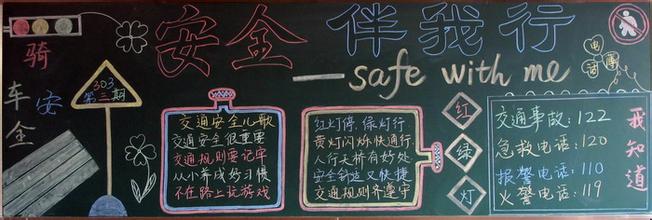 安全伴我行
safe with me
骑车安全
303
第三期
交通安全儿歌
交通安全很重要
交通规则要记牢
从小养成好习惯
不在路上玩游戏
红灯停,绿灯行
黄灯闪烁快通行
人行天桥有好处
安全舒适又快捷
交通规则齐遵守
红
绿
灯
电话薄
交通事故:122
急救电话:120
报警电话:110
火警电话:119
我知道